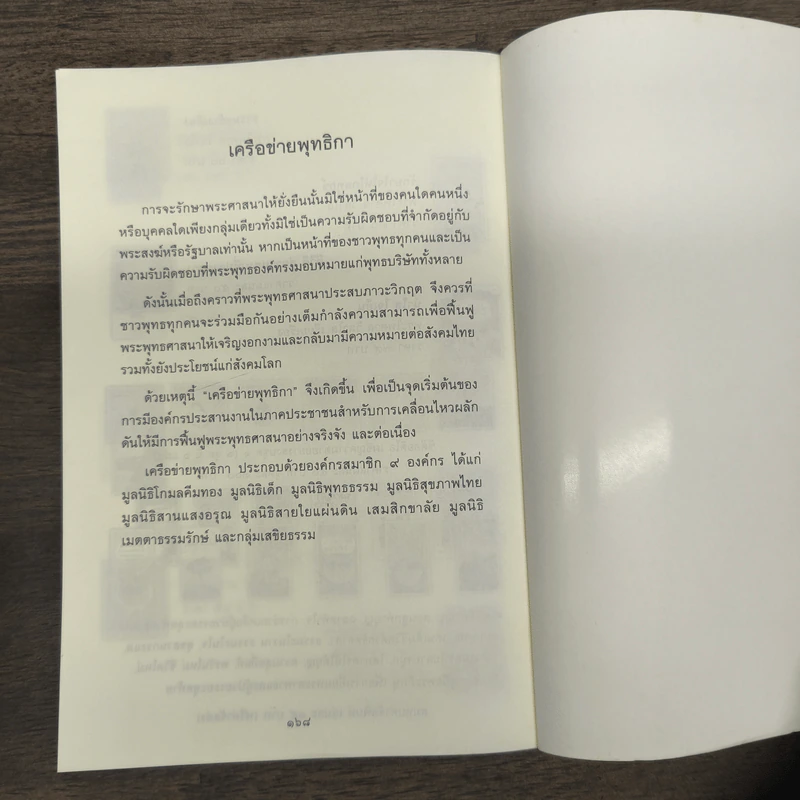 เครือข่ายพุทธิกา
การจะรักษาพระศาสนาให้ยั่งยืนนั้นมิใช่หน้าที่ของคนใดคนหนึ่ง
หรือบุคคลใดเพียงกลุ่มเดียวทั้งมิใช่เป็นความรับผิดชอบที่จำกัดอยู่กับ
พระสงฆ์หรือรัฐบาลเท่านั้น หากเป็นหน้าที่ของชาวพุทธทุกคนและเป็น
ความรับผิดชอบที่พระพุทธองค์ทรงมอบหมายแก่พุทธบริษัททั้งหลาย
ดังนั้นเมื่อถึงคราวที่พระพุทธศาสนาประสบภาวะวิกฤต จึงควรที่
ชาวพุทธทุกคนจะร่วมมือกันอย่างเต็มกำลังความสามารถเพื่อฟื้นฟู
พระพุทธศาสนาให้เจริญงอกงามและกลับมามีความหมายต่อสังคมไทย
รวมทั้งยังประโยชน์แก่สังคมโลก
ด้วยเหตุนี้ “เครือข่ายพุทธิกา” จึงเกิดขึ้น เพื่อเป็นจุดเริ่มต้นของ
การมีองค์กรประสานงานในภาคประชาชนสำหรับการเคลื่อนไหวผลัก
ดันให้มีการฟื้นฟูพระพุทธศาสนาอย่างจริงจัง และต่อเนื่อง
เครือข่ายพุทธิกา ประกอบด้วยองค์กรสมาชิก ๙ องค์กร ได้แก่
มูลนิธิโกมลคีมทอง มูลนิธิเด็ก มูลนิธิพุทธธรรม มูลนิธิสุขภาพไทย
มูลนิธิสานแสงอรุณ มูลนิธิสายใยแผ่นดิน เสมสิกขาลัย มูลนิธิ
เมตตาธรรมรักษ์ และกลุ่มเสขิยธรรม
๑๖๘